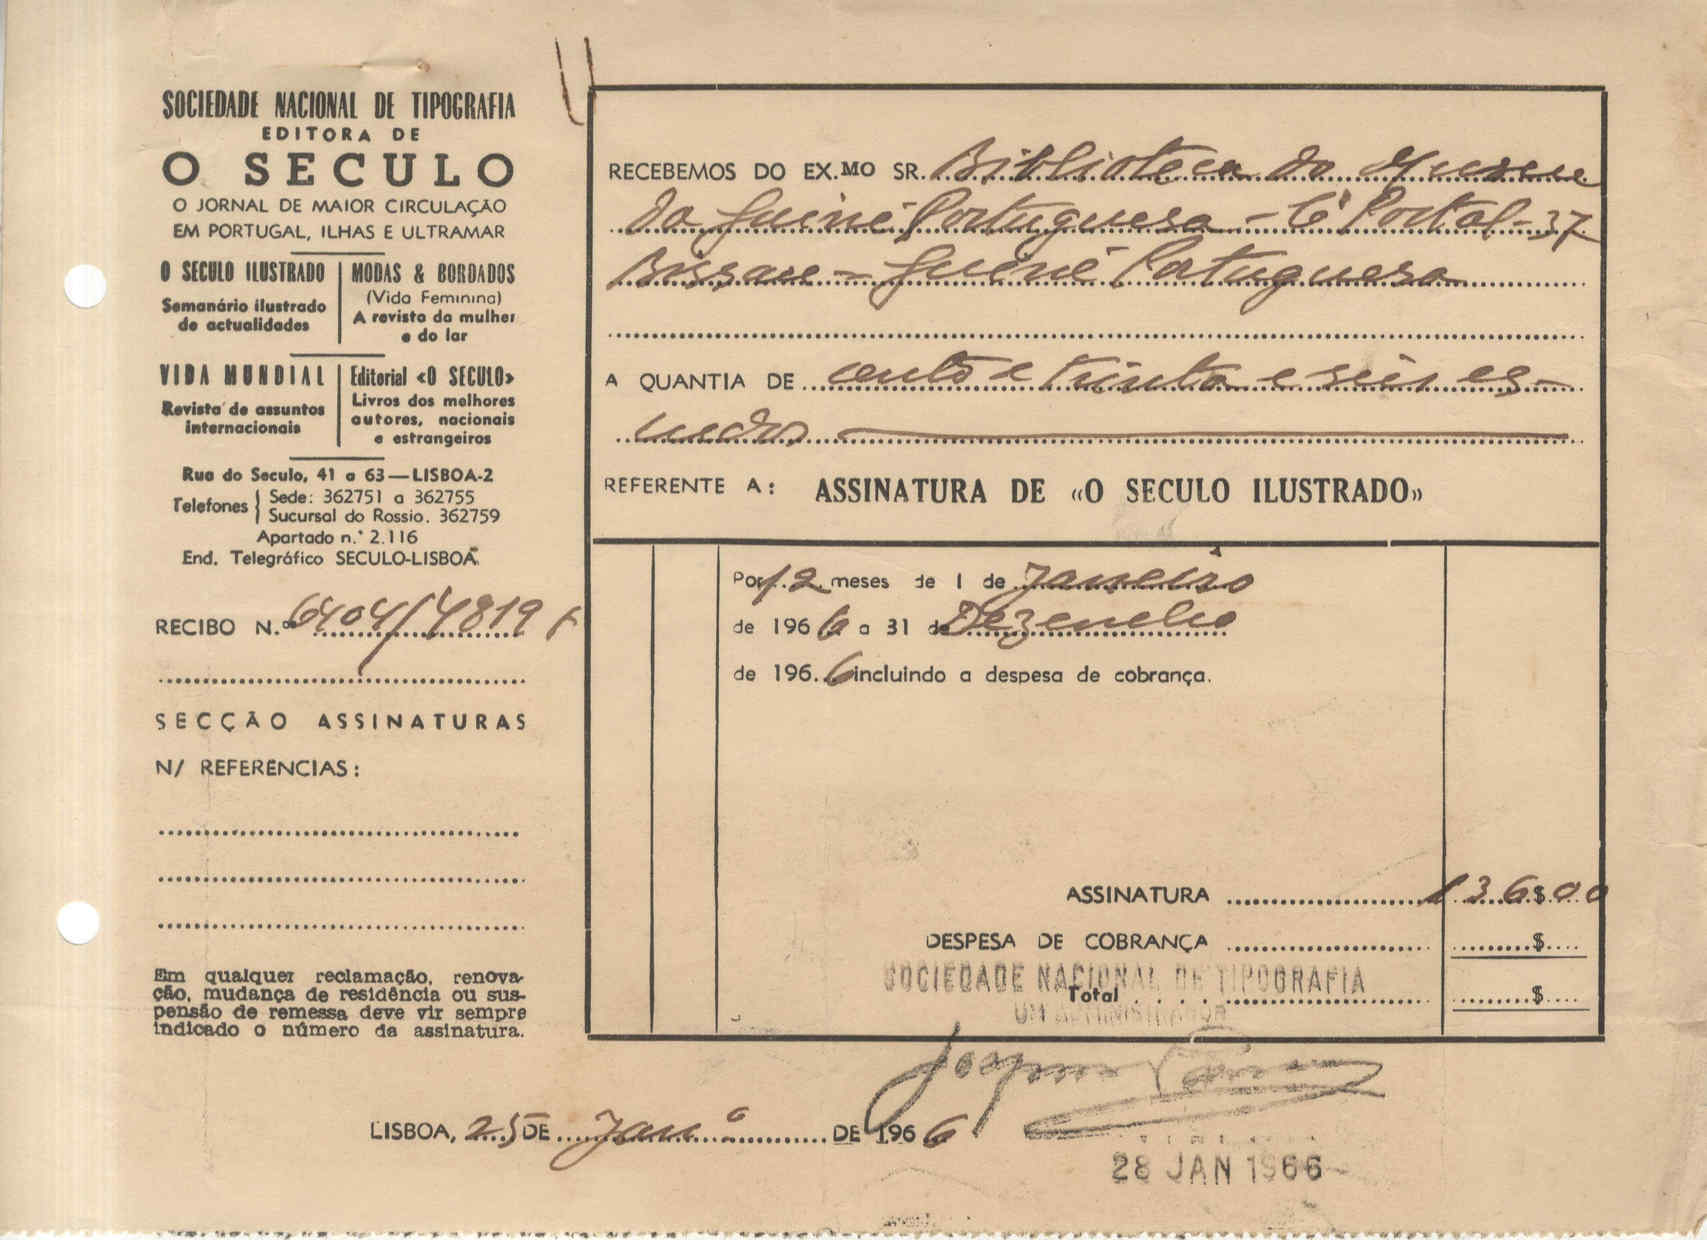 SOCIEDADE NACIONAL DE TIPOGRAFIA
EDITORA DE
O SECULO
O JORNAL DE MAIOR CIRCULAÇÃO
EM PORTUGAL, ILHAS E ULTRAMAR
O SECULO ILUSTRADO
Semanário ilustrado
de actualidades
MODAS & BORDADOS
(Vida Feminina)
A revista da mulher
e do lar
VIDA MUNDIAL
Revista de assuntos
internacionais
Editorial «O SECULO»
Livros dos melhores
autores, nacionais
e estrangeiros
Rua do Seculo, 41 a 63—LISBOA-2
Telefones { Sede: 362751 a 362755
Sucursal do Rossio. 362759
Apartado n.° 2.116
End. Telegráfico SECULO-LISBOA
RECIBO N.º 6404/4819
SECÇÃO ASSINATURAS
N/ REFERÊNCIAS:
Em qualquer reclamação, renova-
ção, mudança de residência ou sus-
pensão de remessa deve vir sempre
indicado o número da assinatura.
RECEBEMOS DO EX.MO SR. Biblioteca do Museu
da Guiné Portuguesa - Cª Postal - 37
Bissau = Guiné Portuguesa
A QUANTIA DE cento e trinta e seis es-
cudos
REFERENTE A: ASSINATURA DE «O SECULO ILUSTRADO»
Por 12 meses de 1 de Janeiro
de 1966 a 31 de Dezembro
de 196.6 incluindo a despesa de cobrança.
ASSINATURA 136$00
DESPESA DE COBRANÇA $
SOCIEDADE NACIONAL DE TIPOGRAFIA
Total $
UM ADMINISTRADOR
LISBOA, 25 DE Janº DE 1966
28 JAN 1966